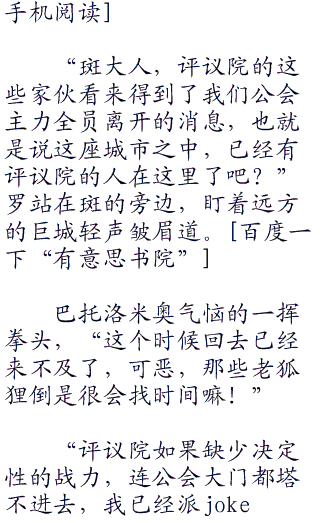 手机阅读]
“斑大人，评议院的这
些家伙看来得到了我们公会
主力全员离开的消息，也就
是说这座城市之中，已经有
评议院的人在这里了吧？”
罗站在斑的旁边，盯着远方
的巨城轻声皱眉道。[百度一
下“有意思书院”]
巴托洛米奥气恼的一挥
拳头，“这个时候回去已经
来不及了，可恶，那些老狐
狸倒是很会找时间嘛！”
“评议院如果缺少决定
性的战力，连公会大门都塔
不进去，我已经派joke